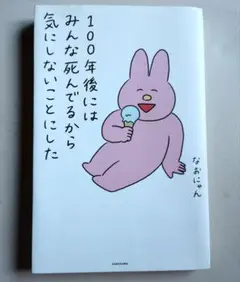 100年後には
みんな死んでるから
気にしないことにした
なおにゃん
KADOKAWA